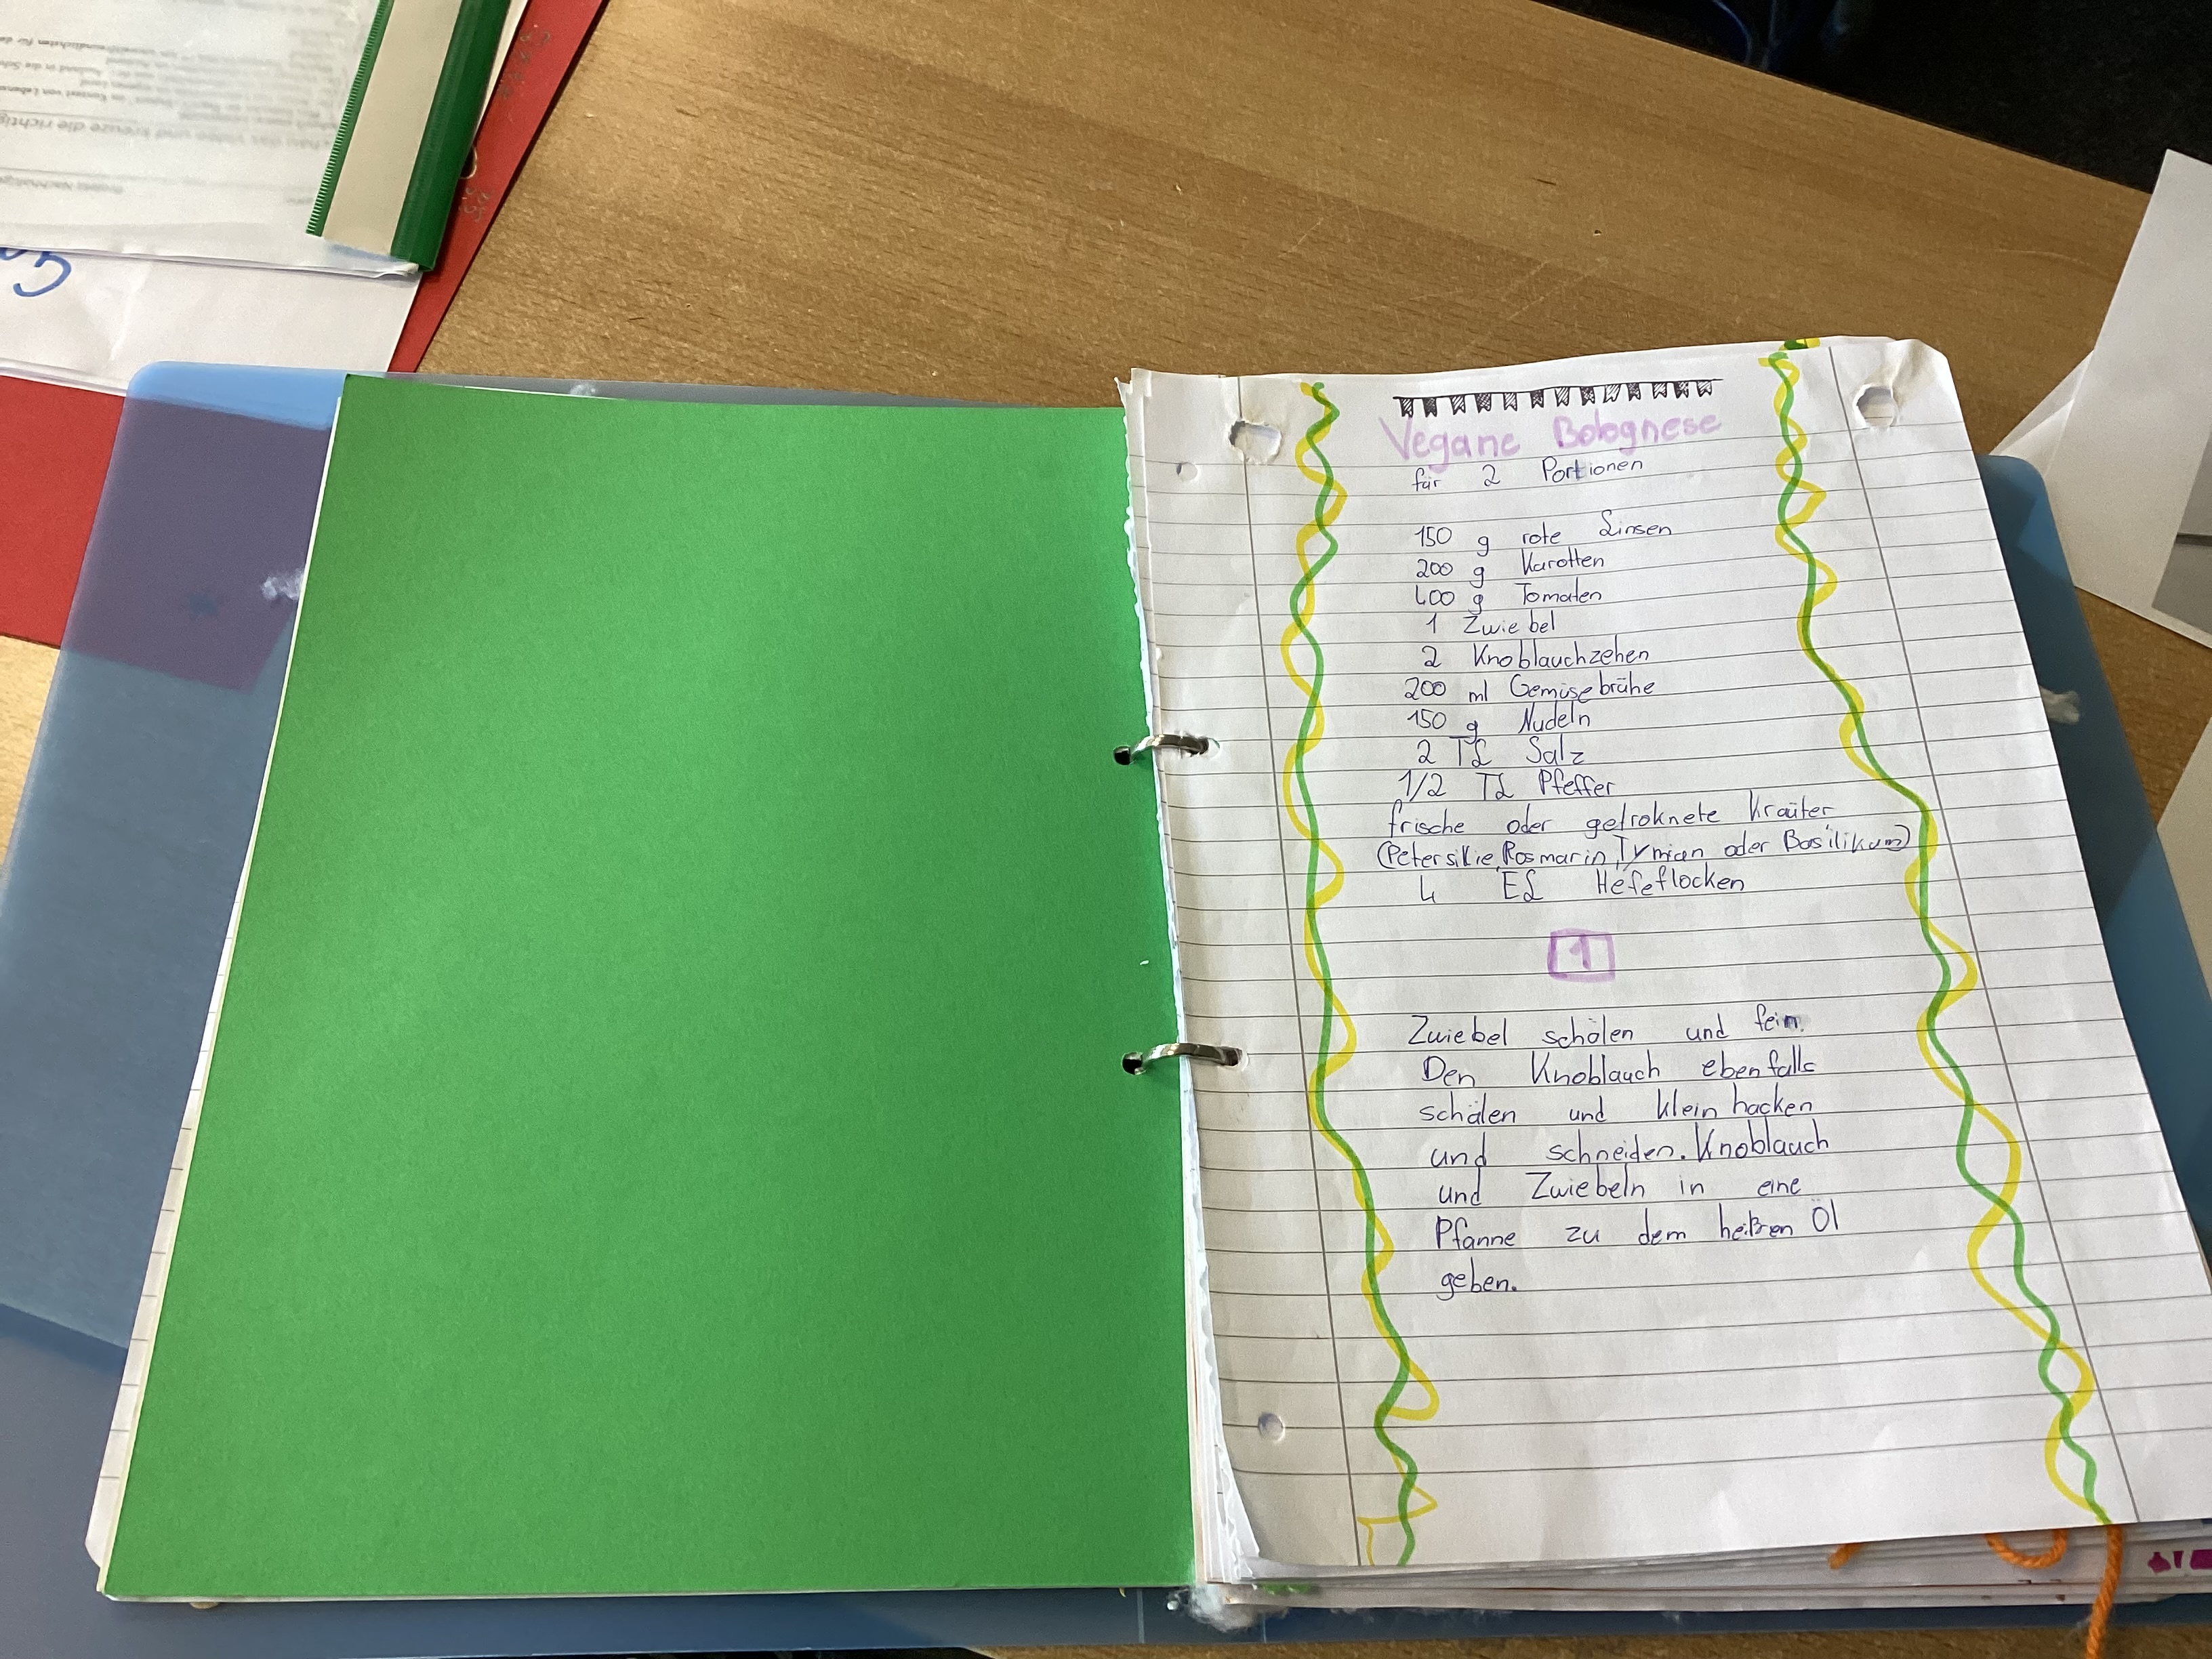 Vegane Bolognese
für 2 Portionen
150 g rote Linsen
200 g Karotten
400 g Tomaten
1 Zwiebel
2 Knoblauchzehen
200 ml Gemüsebrühe
150 g Nudeln
2 TL Salz
1/2 TL Pfeffer
frische oder getroknete Kraüter
(Petersilie, Rosmarin, Tymian oder Basilikum)
4 EL Hefeflocken
1
Zwiebel schälen und fein.
Den Knoblauch ebenfalls
schälen und klein hacken
und schneiden. Knoblauch
und Zwiebeln in eine
Pfanne zu dem heißen Öl
geben.